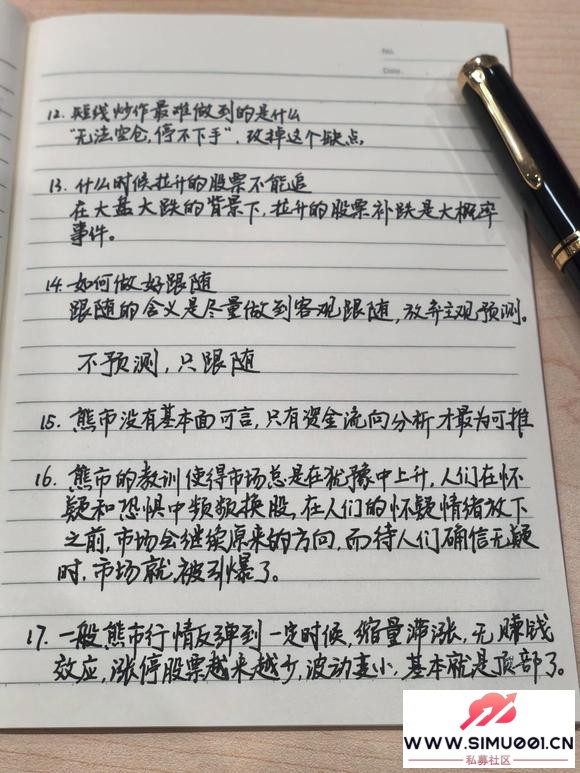 No.
Date
12. 短线炒作最难做到的是什么
“无法空仓,停不下手”,改掉这个缺点,
13. 什么时候拉升的股票不能追
在大盘大跌的背景下,拉升的股票补跌是大概率
事件。
14. 如何做好跟随
跟随的含义是尽量做到客观跟随,放弃主观预测。
不预测,只跟随
15. 熊市没有基本面可言,只有资金流向分析才最为可推
16. 熊市的教训使得市场总是在犹豫中上升,人们在怀
疑和恐惧中频频换股,在人们的怀疑情绪放下
之前,市场会继续原来的方向,而待人们确信无疑
时,市场就被引爆了。
17. 一般熊市行情反弹到一定时候,缩量滞涨,无赚钱
效应,涨停股票越来越少,波动变小,基本就是顶部了。
WWW.SIMU001.CN
私募社区